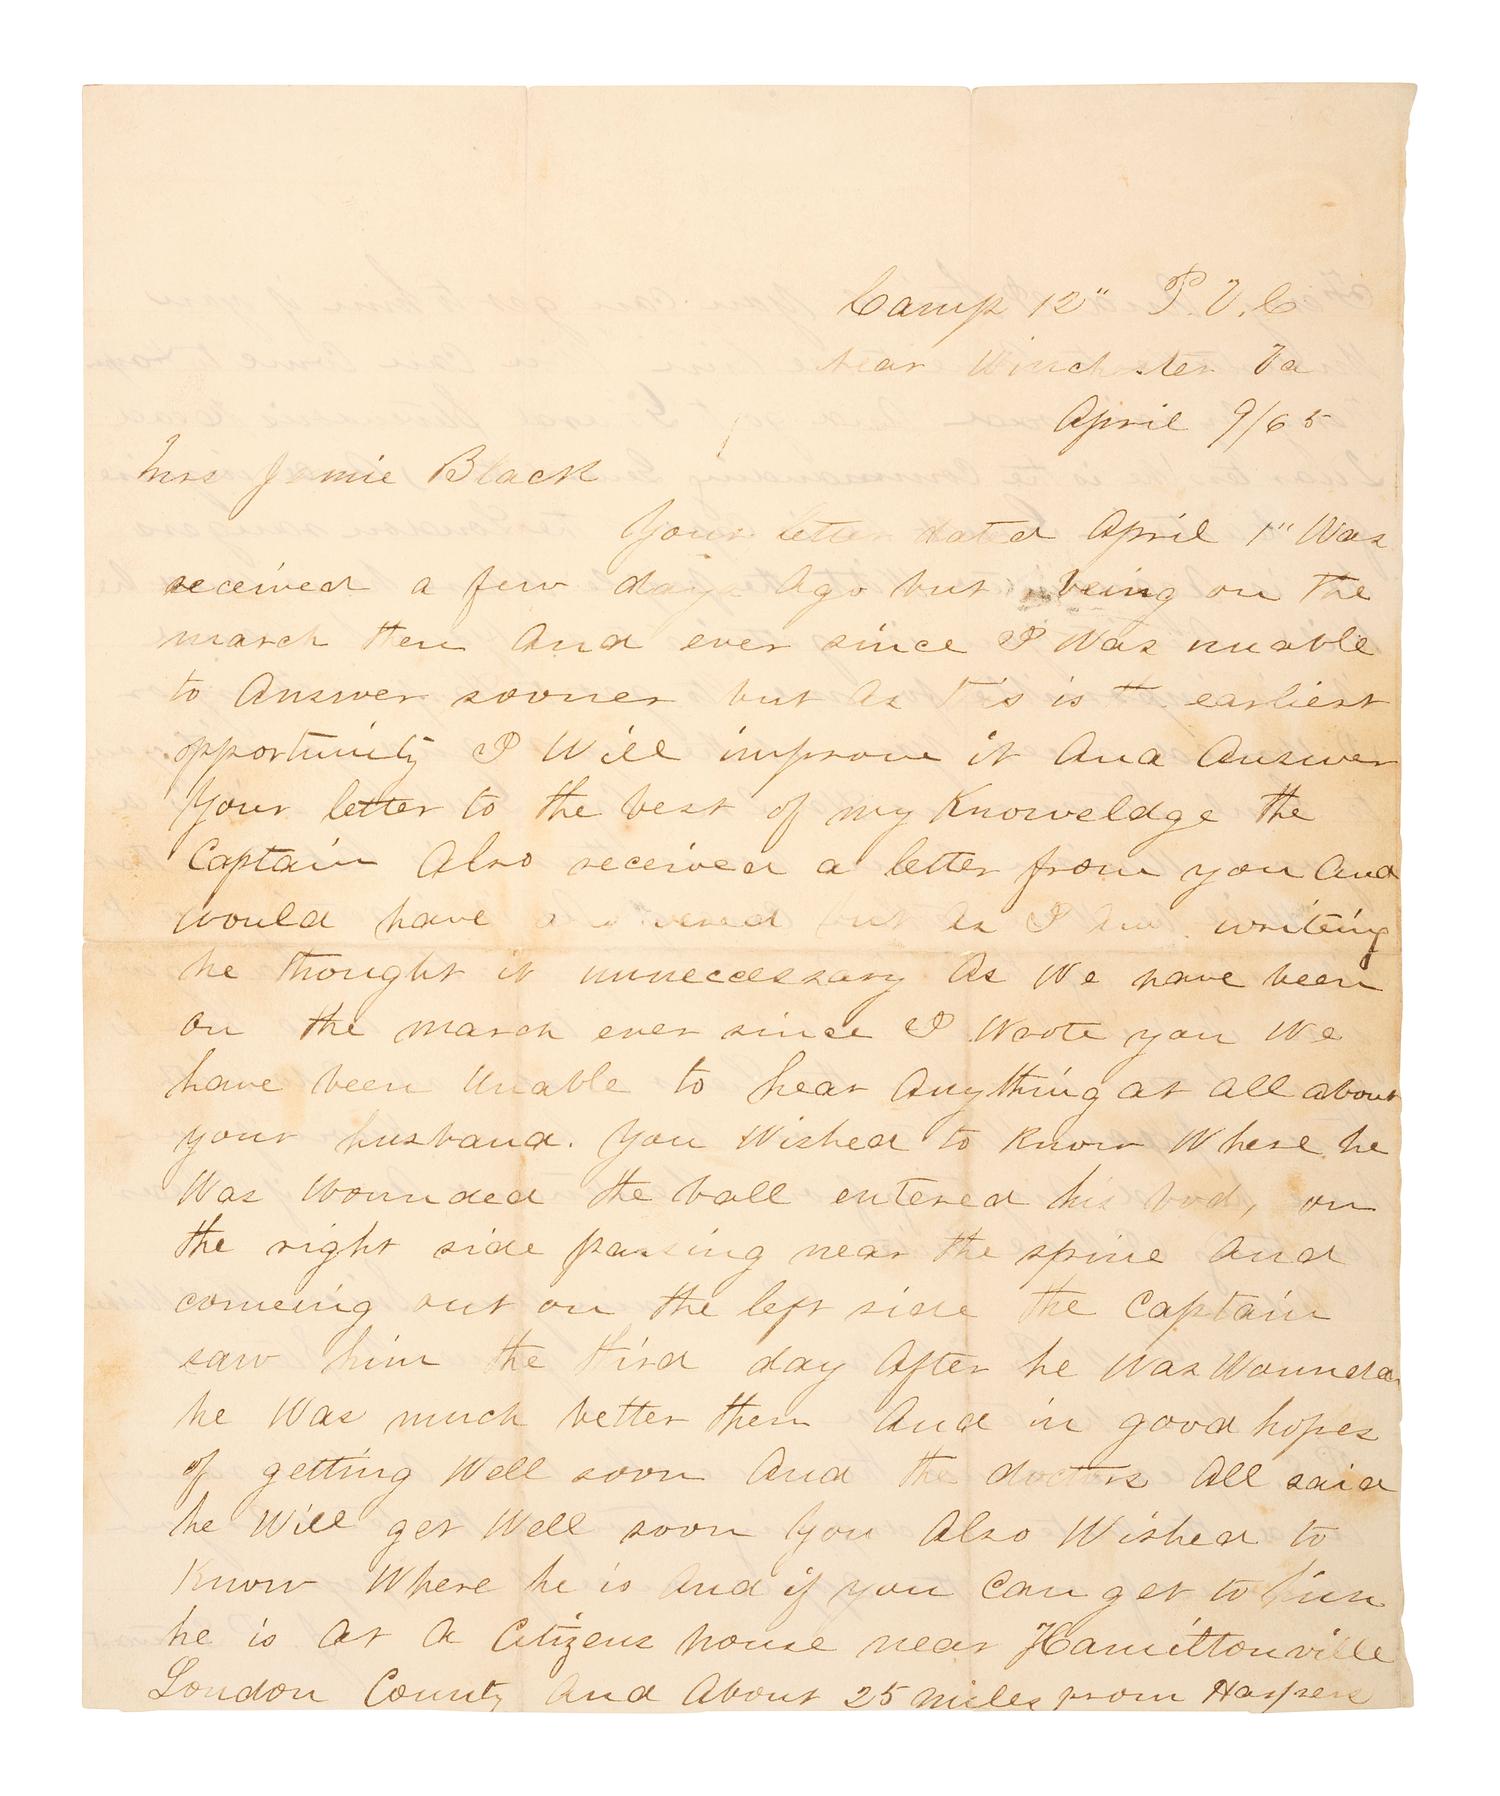 Camp 12" P.V.C
near Winchester Va
April 9/65
Mrs Jamie Black
Your letter dated April 1" Was
received a few days Ago but being on the
march then And ever since I Was unable
to Answer sooner but As This is the earliest
opportunity I Will improve it And Answer
Your letter to the best of my Knoweldge the
Captain Also received a letter from you And
would have answered but As I Am writing
he thought it unneccessary As We have been
on the march ever since I Wrote you We
have been Unable to hear Anything at all about
your husband. You Wished to Know Where he
Was Wounded the ball entered his body on
the right side passing near the spine And
comeing out on the left side the Captain
saw him the third day After he Was Wounded
he Was much better then And in good hopes
of getting Well soon And the doctors All said
he Will get Well soon You Also Wished to
Know Where he is And if you Can get to him
he is At A Citizens house near Hamiltonville
Loudon County And About 25 miles from Harpers